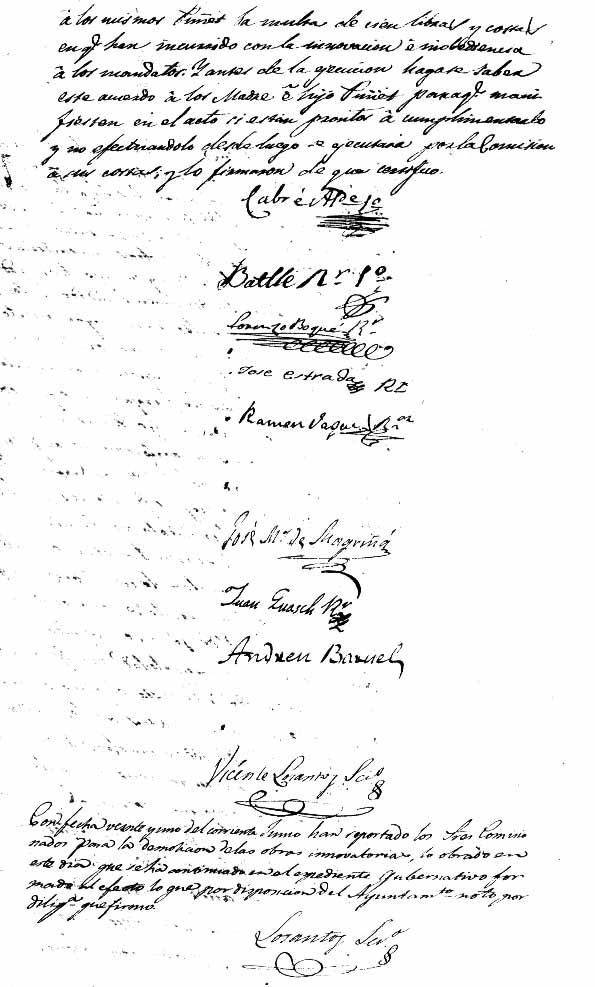 à los mismos Piñet la multa de cien libras y costas
en q.e han incurrido con la innovacion é inobediencia
à los mandatos. Y antes de la ejecucion hagase saber
este acuerdo à los Madre é hijo Piñet para q.e mani
fiesten en el acto si están prontos à cumplimentarlo
y no efectuandolo desde luego se ejecutará por la Comision
à sus costas; y lo firmaron de que certifico.
Cabré
Batlle R.r 1.o
Lorenzo Boqué R.r
Jose estrada RE
Ramon R.or
José M.a de Magriñá
Juan Guasch R.r
Andreu
Vicente Losantos Scio.
Con fecha veinte y uno del corriente Junio han reportado los Sres Comisio
nados para la demolicion de las obras innovatorias, lo obrado en
este dia que se ha continuado en el expediente Gubernativo for
mado al efecto lo que por disposicion del Ayuntam.to noto por
dilig.a que firmo.
Losantos Scio.